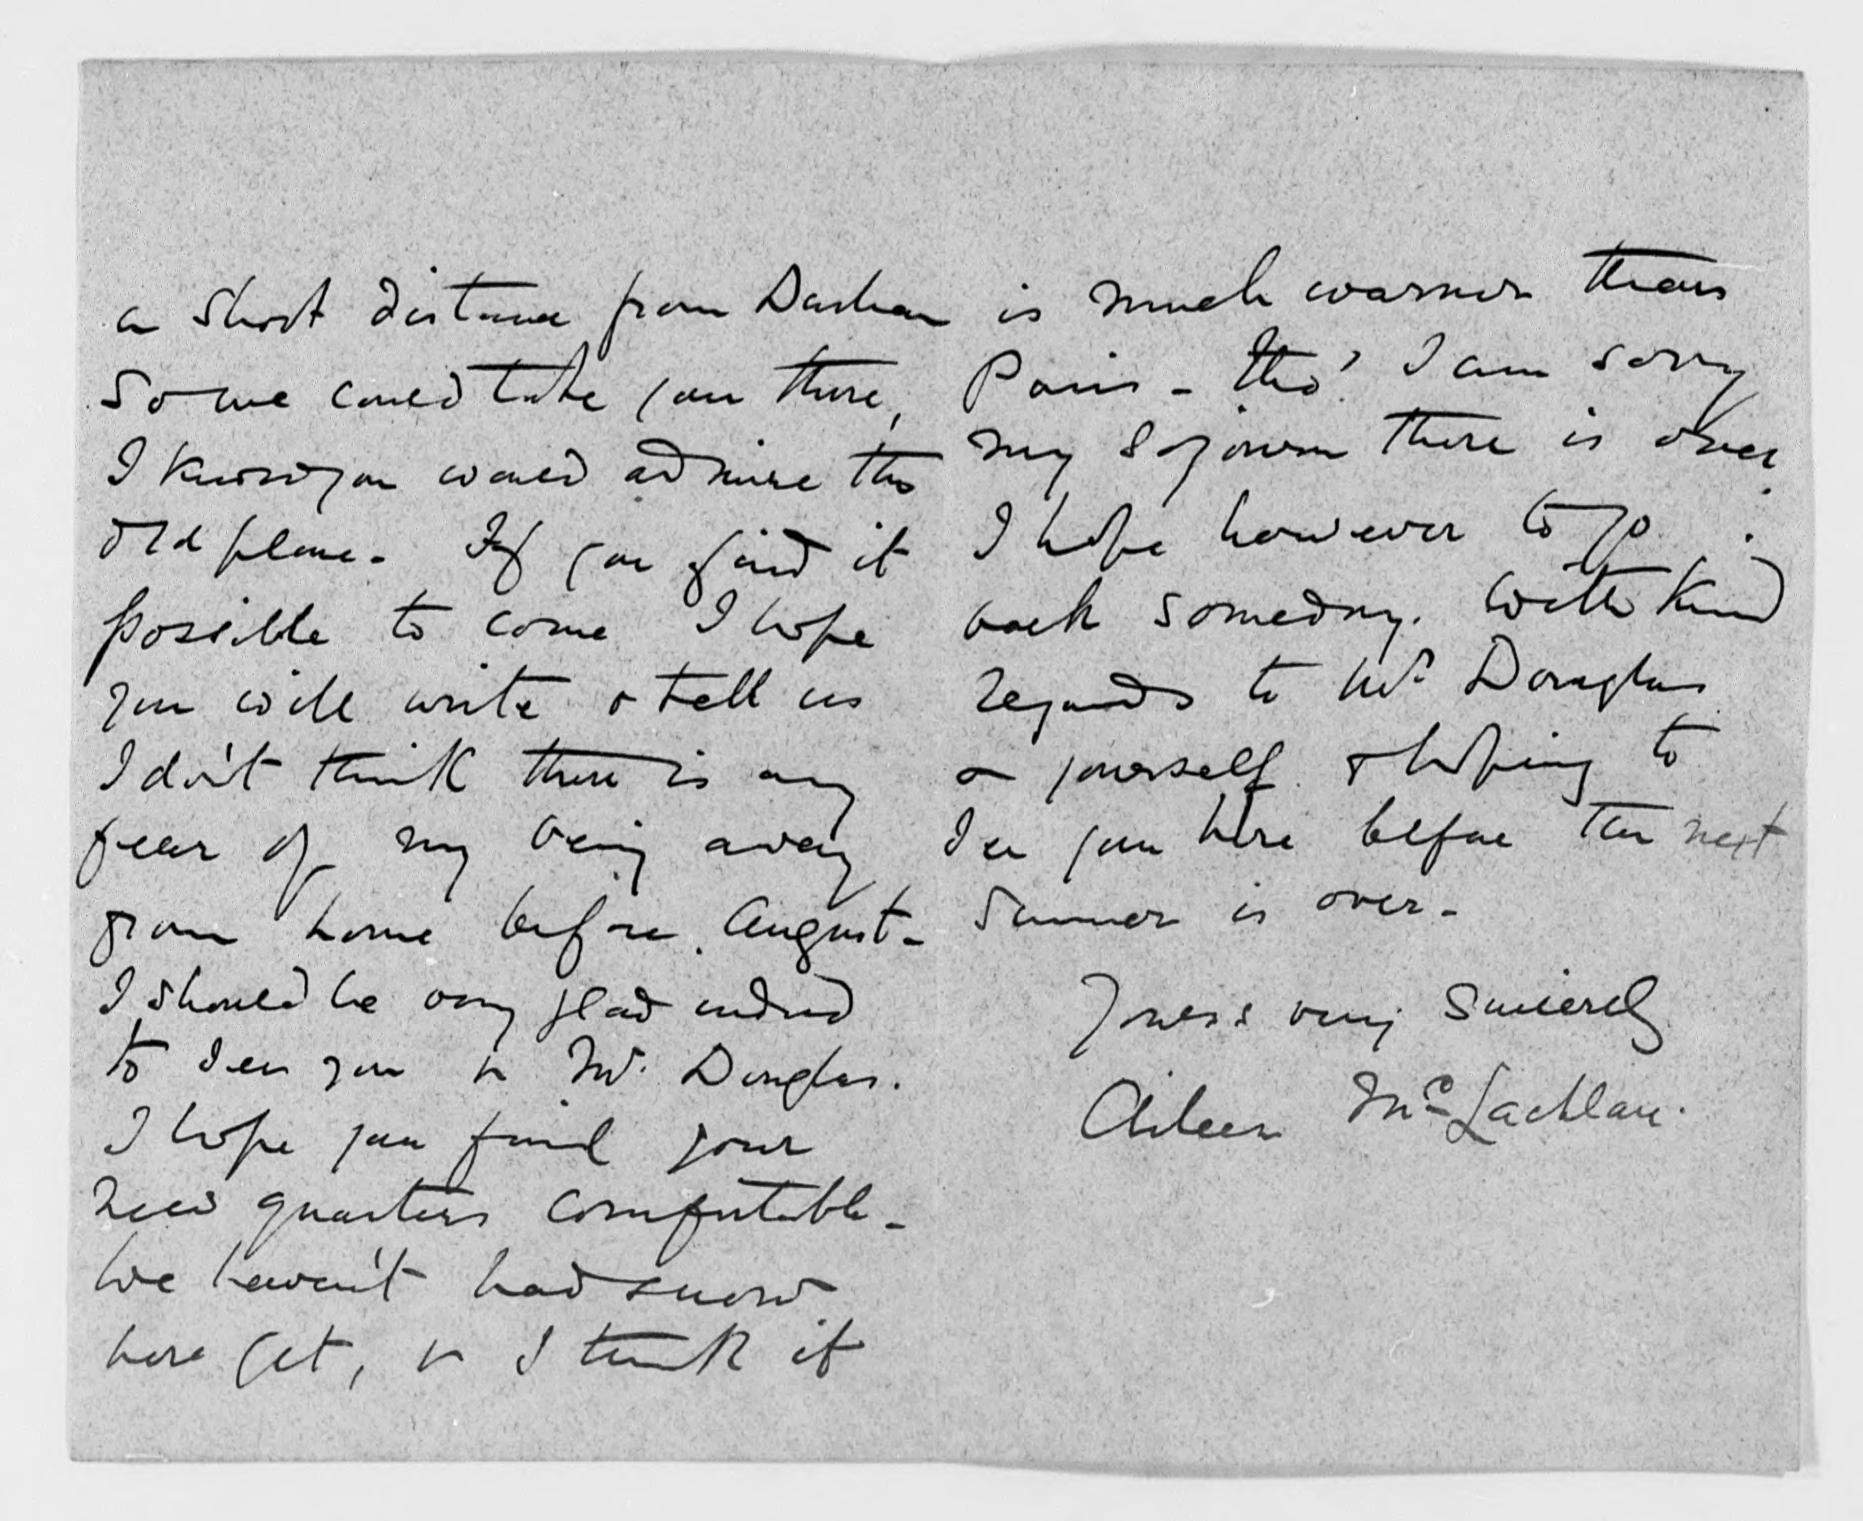 a short distance from Durham
so we could take you there,
I know you would admire the
old place. If you find it
possible to come I hope
you will write & tell us
I don't think there is any
fear of my being away
from home before August-
I should be very glad indeed
to see you & Mr. Douglas.
I hope you find your
new quarters comfortable-
We haven't had snow
here yet, & I think it
is much warmer than
Paris - tho' I am sorry
my sojourn there is over.
I hope however to go
back someday. With kind
regards to Mr Douglas
& yourself & hoping to
see you here before the next
summer is over-
Yours very sincerely
Aileen McLachlan.